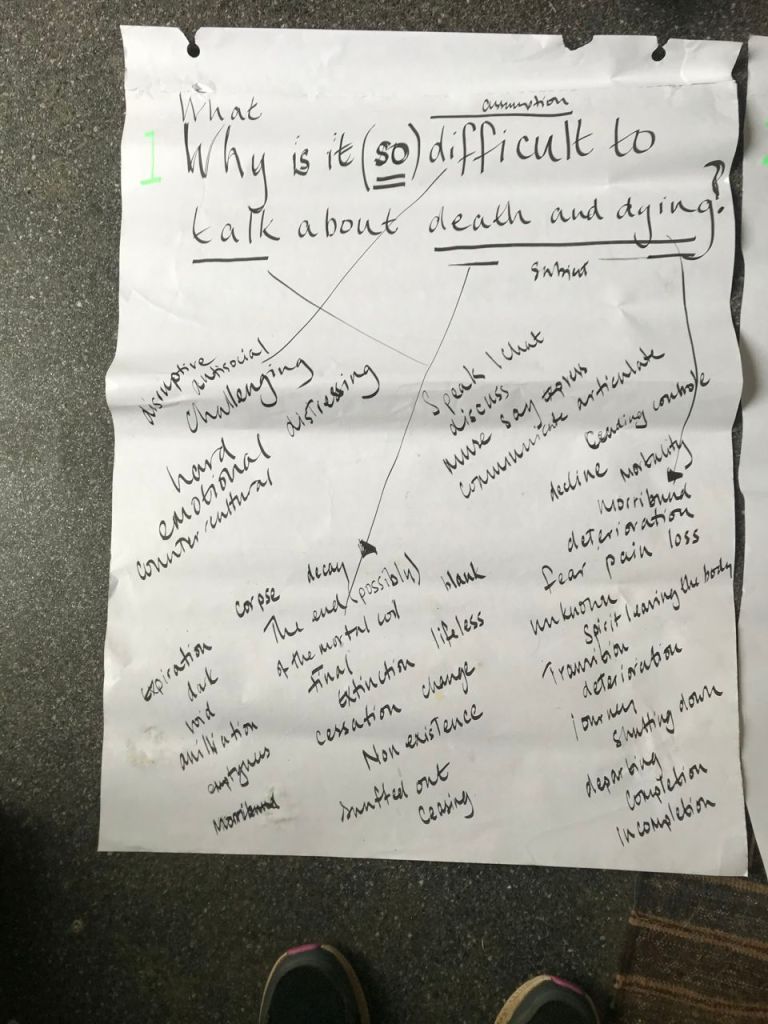 What
assumption
1 Why is it (so) difficult to
talk about death and dying?
subject
disruptive antisocial
challenging
distressing
hard
emotional
countercultural
Speak / chat
discuss
Muse Say express
communicate articulate
Ceading controle
decline mortality
morribund
deterioration
fear pain loss
unknown
Spirit leaving the body
Transition
deterioration
Journey
Shutting down
departing
Completion
Incompletion
corpse decay
The end (possibly)
of the mortal coil
blank
final
lifeless
extinction
cessation change
Non existence
snuffed out
Ceasing
expiration
dark
void
emptyness
Morribund